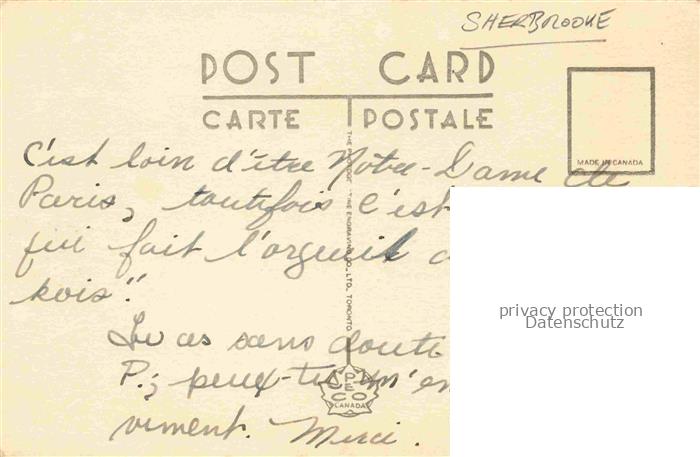 SHERBROOKE
POST CARD
CARTE POSTALE
MADE IN CANADA
C'est loin d'être Notre-Dame de
Paris, toutefois c'est
qui fait l'orgueil
kois".
Tu as sans doute
P.; peux-tu m'en
viment. Merci.
THE ENGRAVING CO., LTD., TORONTO
PECO
CANADA
privacy protection
Datenschutz